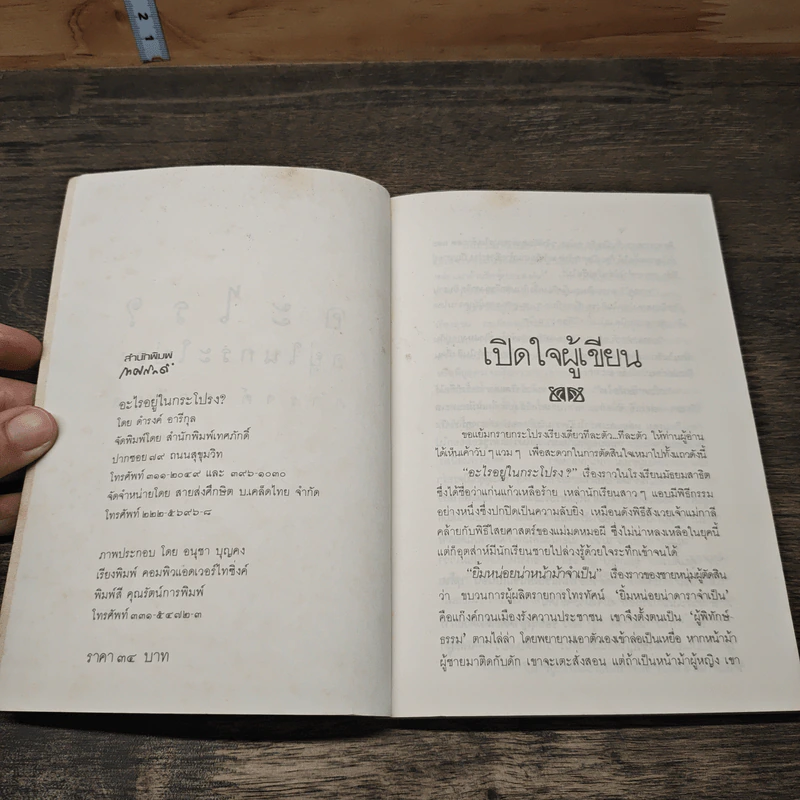 2 1
สำนักพิมพ์
อะไรอยู่ในกระโปรง?
โดย ดำรงค์ อารีกุล
จัดพิมพ์โดย สำนักพิมพ์เทศภักดิ์
ปากซอย ๗๙ ถนนสุขุมวิท
โทรศัพท์ ๓๑๑-๒๐๔๙ และ ๓๙๖-๑๐๓๐
จัดจำหน่ายโดย สายส่งศึกษิต บ.เคล็ดไทย จำกัด
โทรศัพท์ ๒๒๒-๕๖๙๖-๘
ภาพประกอบ โดย อนุชา บุญคง
เรียงพิมพ์ คอมพิวแอดเวอร์ไทซิ่งค์
พิมพ์สี คุณรัตน์การพิมพ์
โทรศัพท์ ๓๓๑-๕๔๗๒-๓
ราคา ๓๔ บาท
เปิดใจผู้เขียน
ขอแย้มกรายกระโปรงเรียงเดี่ยวทีละตัว..ทีละตัว ให้ท่านผู้อ่าน
ได้เห็นเค้าวับ ๆ แวม ๆ เพื่อสะดวกในการตัดสินใจเหมาไปทั้งแถวดังนี้
“อะไรอยู่ในกระโปรง ?” เรื่องราวในโรงเรียนมัธยมสาธิต
ซึ่งได้ชื่อว่าแก่นแก้วเหลือร้าย เหล่านักเรียนสาว ๆ แอบมีพิธีกรรม
อย่างหนึ่งซึ่งปกปิดเป็นความลับยิ่ง เหมือนดังพิธีสังเวยเจ้าแม่กาลี
คล้ายกับพิธีไสยศาสตร์ของแม่มดหมอผี ซึ่งไม่น่าหลงเหลือในยุคนี้
แต่ก็อุตส่าห์มีนักเรียนชายไปล่วงรู้ด้วยใจระทึกเข้าจนได้
“ยิ้มหน่อยน่าหน้าม้าจำเป็น” เรื่องราวของชายหนุ่มผู้ตัดสิน
ว่า ขบวนการผู้ผลิตรายการโทรทัศน์ ‘ยิ้มหน่อยน่าดาราจำเป็น’
คือแก๊งค์กวนเมืองรังควานประชาชน เขาจึงตั้งตนเป็น ‘ผู้พิทักษ์-
ธรรม’ ตามไล่ล่า โดยพยายามเอาตัวเองเข้าล่อเป็นเหยื่อ หากหน้าม้า
ผู้ชายมาติดกับดัก เขาจะเตะสั่งสอน แต่ถ้าเป็นหน้าม้าผู้หญิง เขา